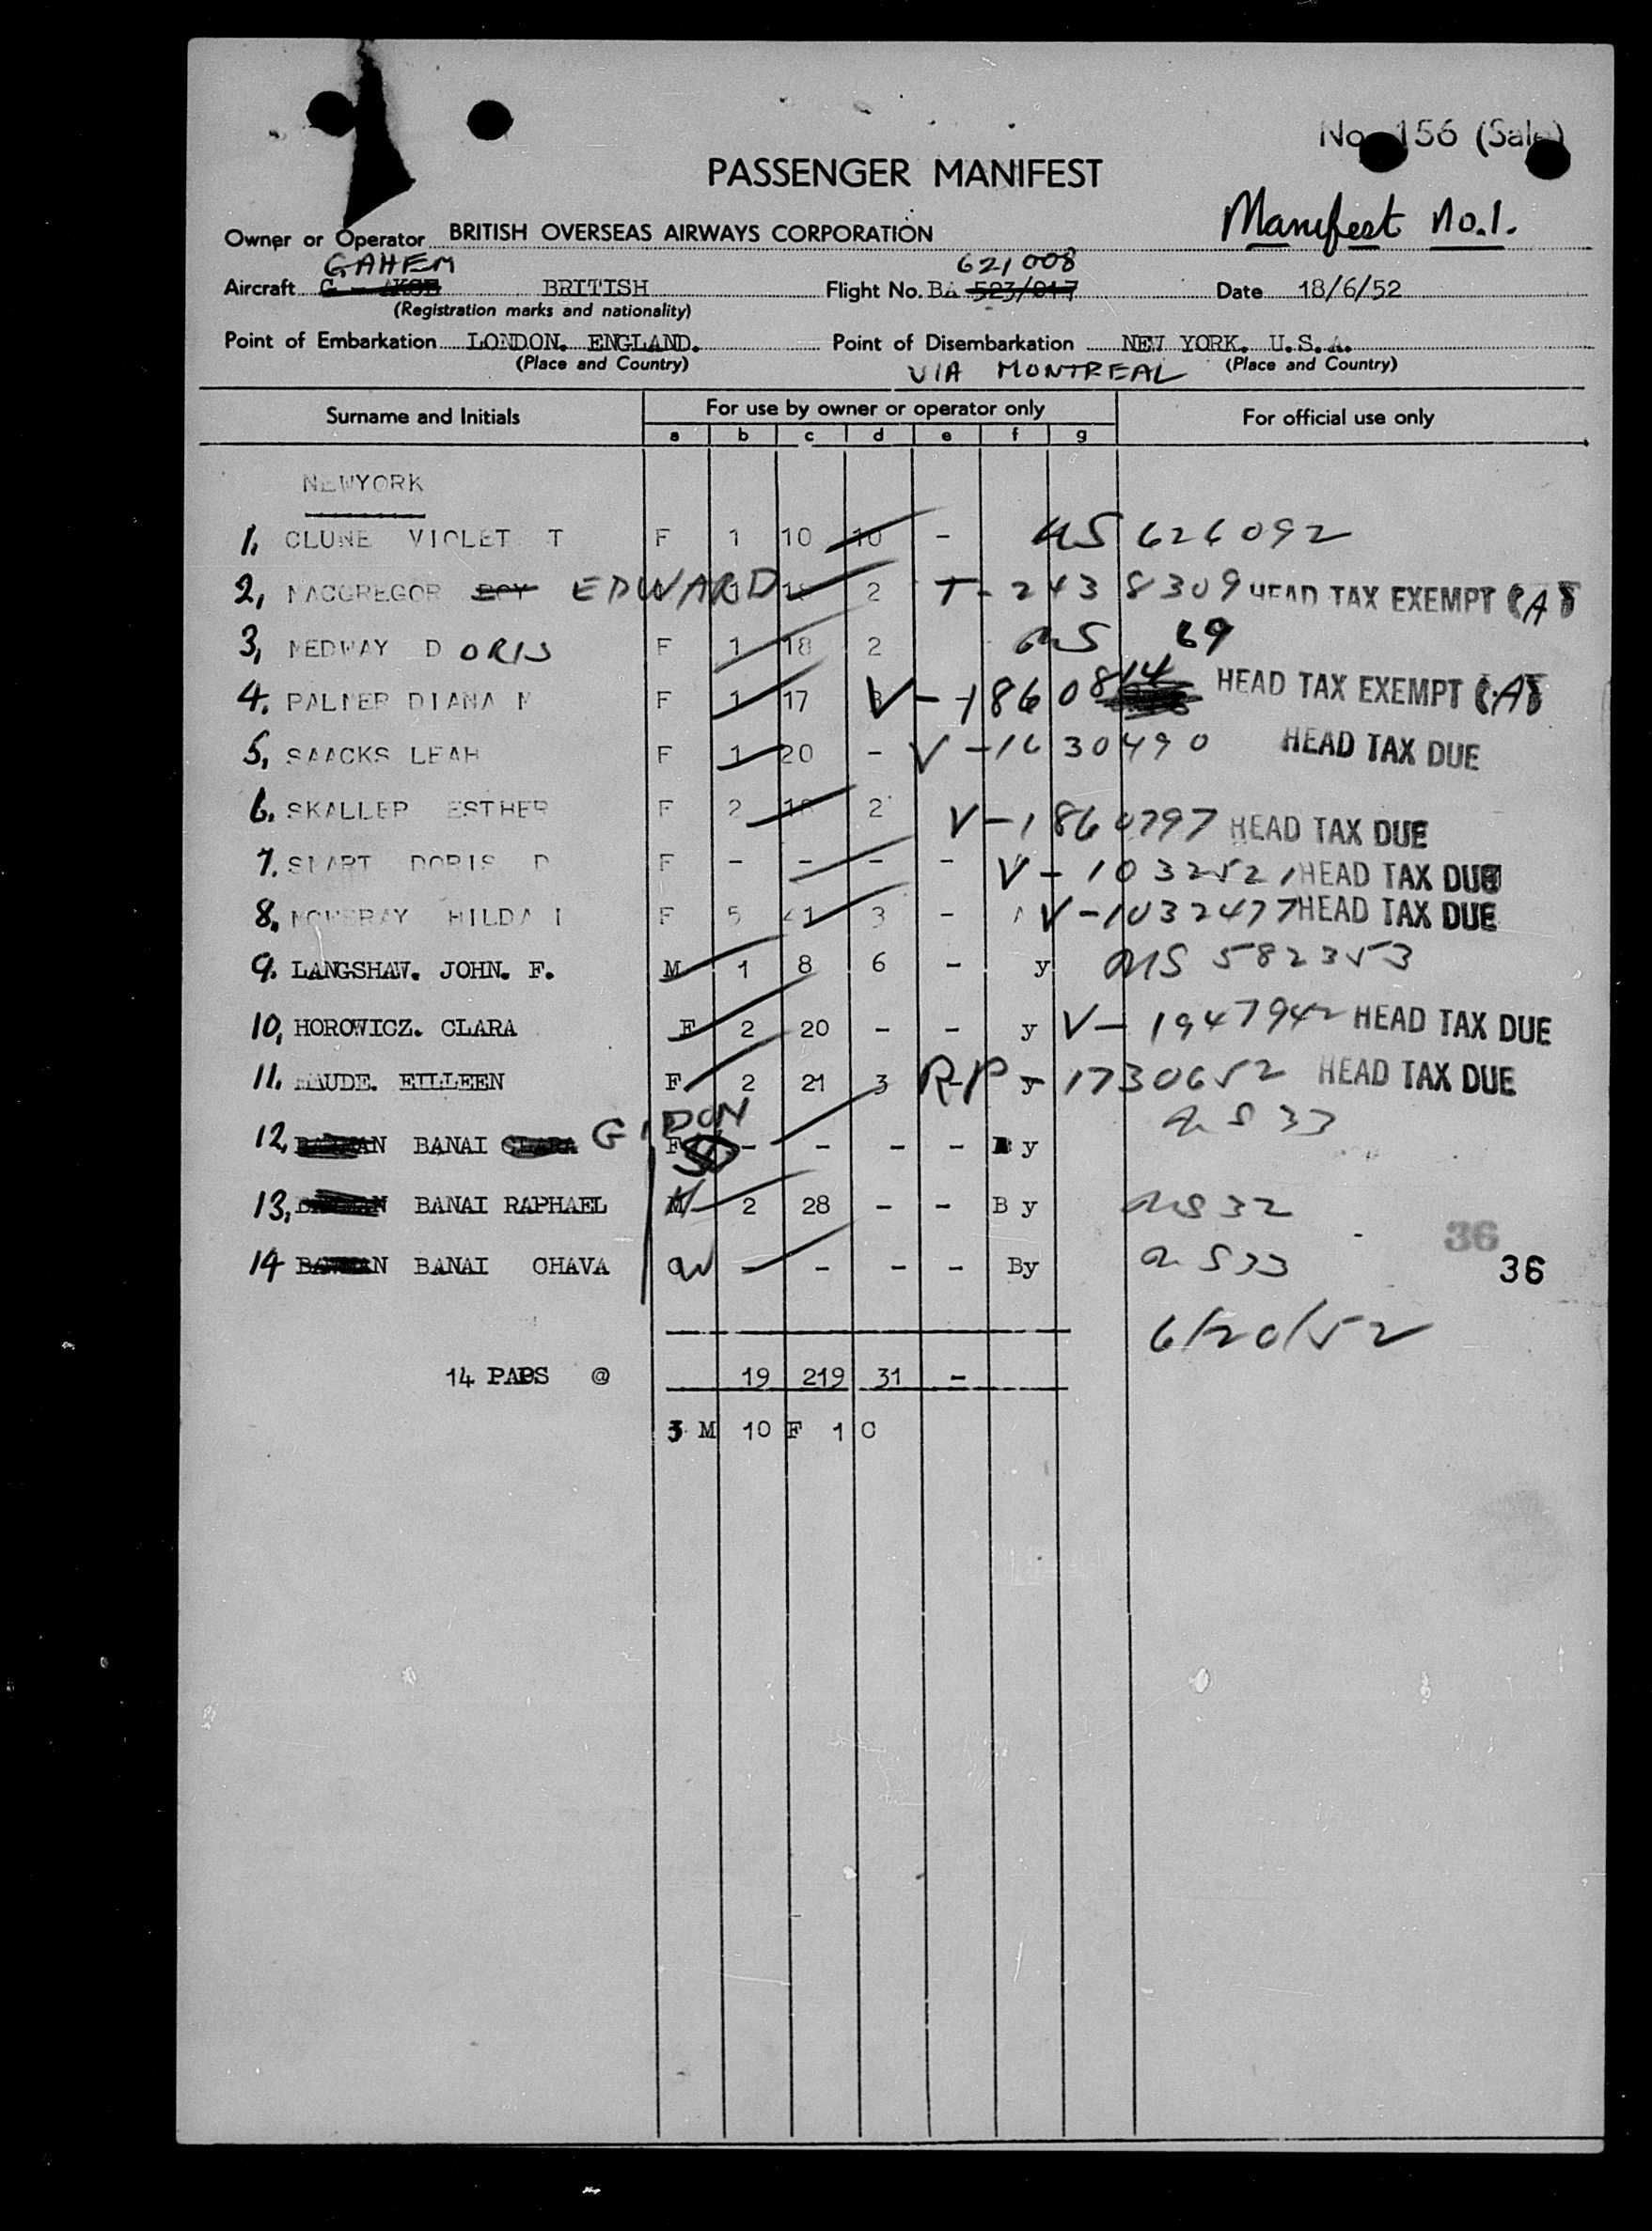 No. 156 (Sale)
PASSENGER MANIFEST
Manifest No.1.
Owner or Operator BRITISH OVERSEAS AIRWAYS CORPORATION
GAHEM 621008
Aircraft G - BRITISH Flight No. BA 523/017 Date 18/6/52
(Registration marks and nationality)
Point of Embarkation LONDON. ENGLAND. Point of Disembarkation NEW YORK. U.S.A.
(Place and Country) VIA MONTREAL (Place and Country)
Surname and Initials For use by owner or operator only For official use only
a b c d e f g
NEWYORK
1. CLUNE VIOLET T F 1 10 10 - 626092
2, MACGREGOR ROY EDWARD 1 18 2 T-2438309 HEAD TAX EXEMPT (A)
3, MEDWAY D ORIS F 1 18 2 69
4. PALMER DIANA M F 1 17 V-1860814 HEAD TAX EXEMPT (A)
5, SAACKS LEAH F 1 20 - V-1630490 HEAD TAX DUE
6. SKALLER ESTHER F 2 18 2 V-1860797 HEAD TAX DUE
7. DORIS D F - - - - V-1032521 HEAD TAX DUE
8, MOWBRAY HILDA I F 5 41 3 - V-1032477 HEAD TAX DUE
9. LANGSHAW. JOHN. F. M 1 8 6 - y 582353
10, HOROWICZ. CLARA F 2 20 - - y V-1947942 HEAD TAX DUE
11. MAUDE. EILLEEN F 2 21 3 RP y-1730652 HEAD TAX DUE
12, BANAI CLARA GIDON F - - - - B y 33
13, BANAI RAPHAEL M 2 28 - - B y 32
36
14 BANAI OHAVA - - - - By 33 36
6/20/52
14 PAPS @ 19 219 31 -
3 M 10 F 1 C